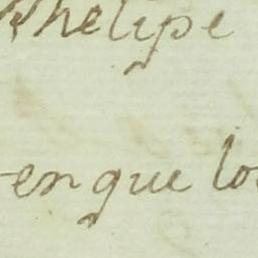 Phelipe
en que los